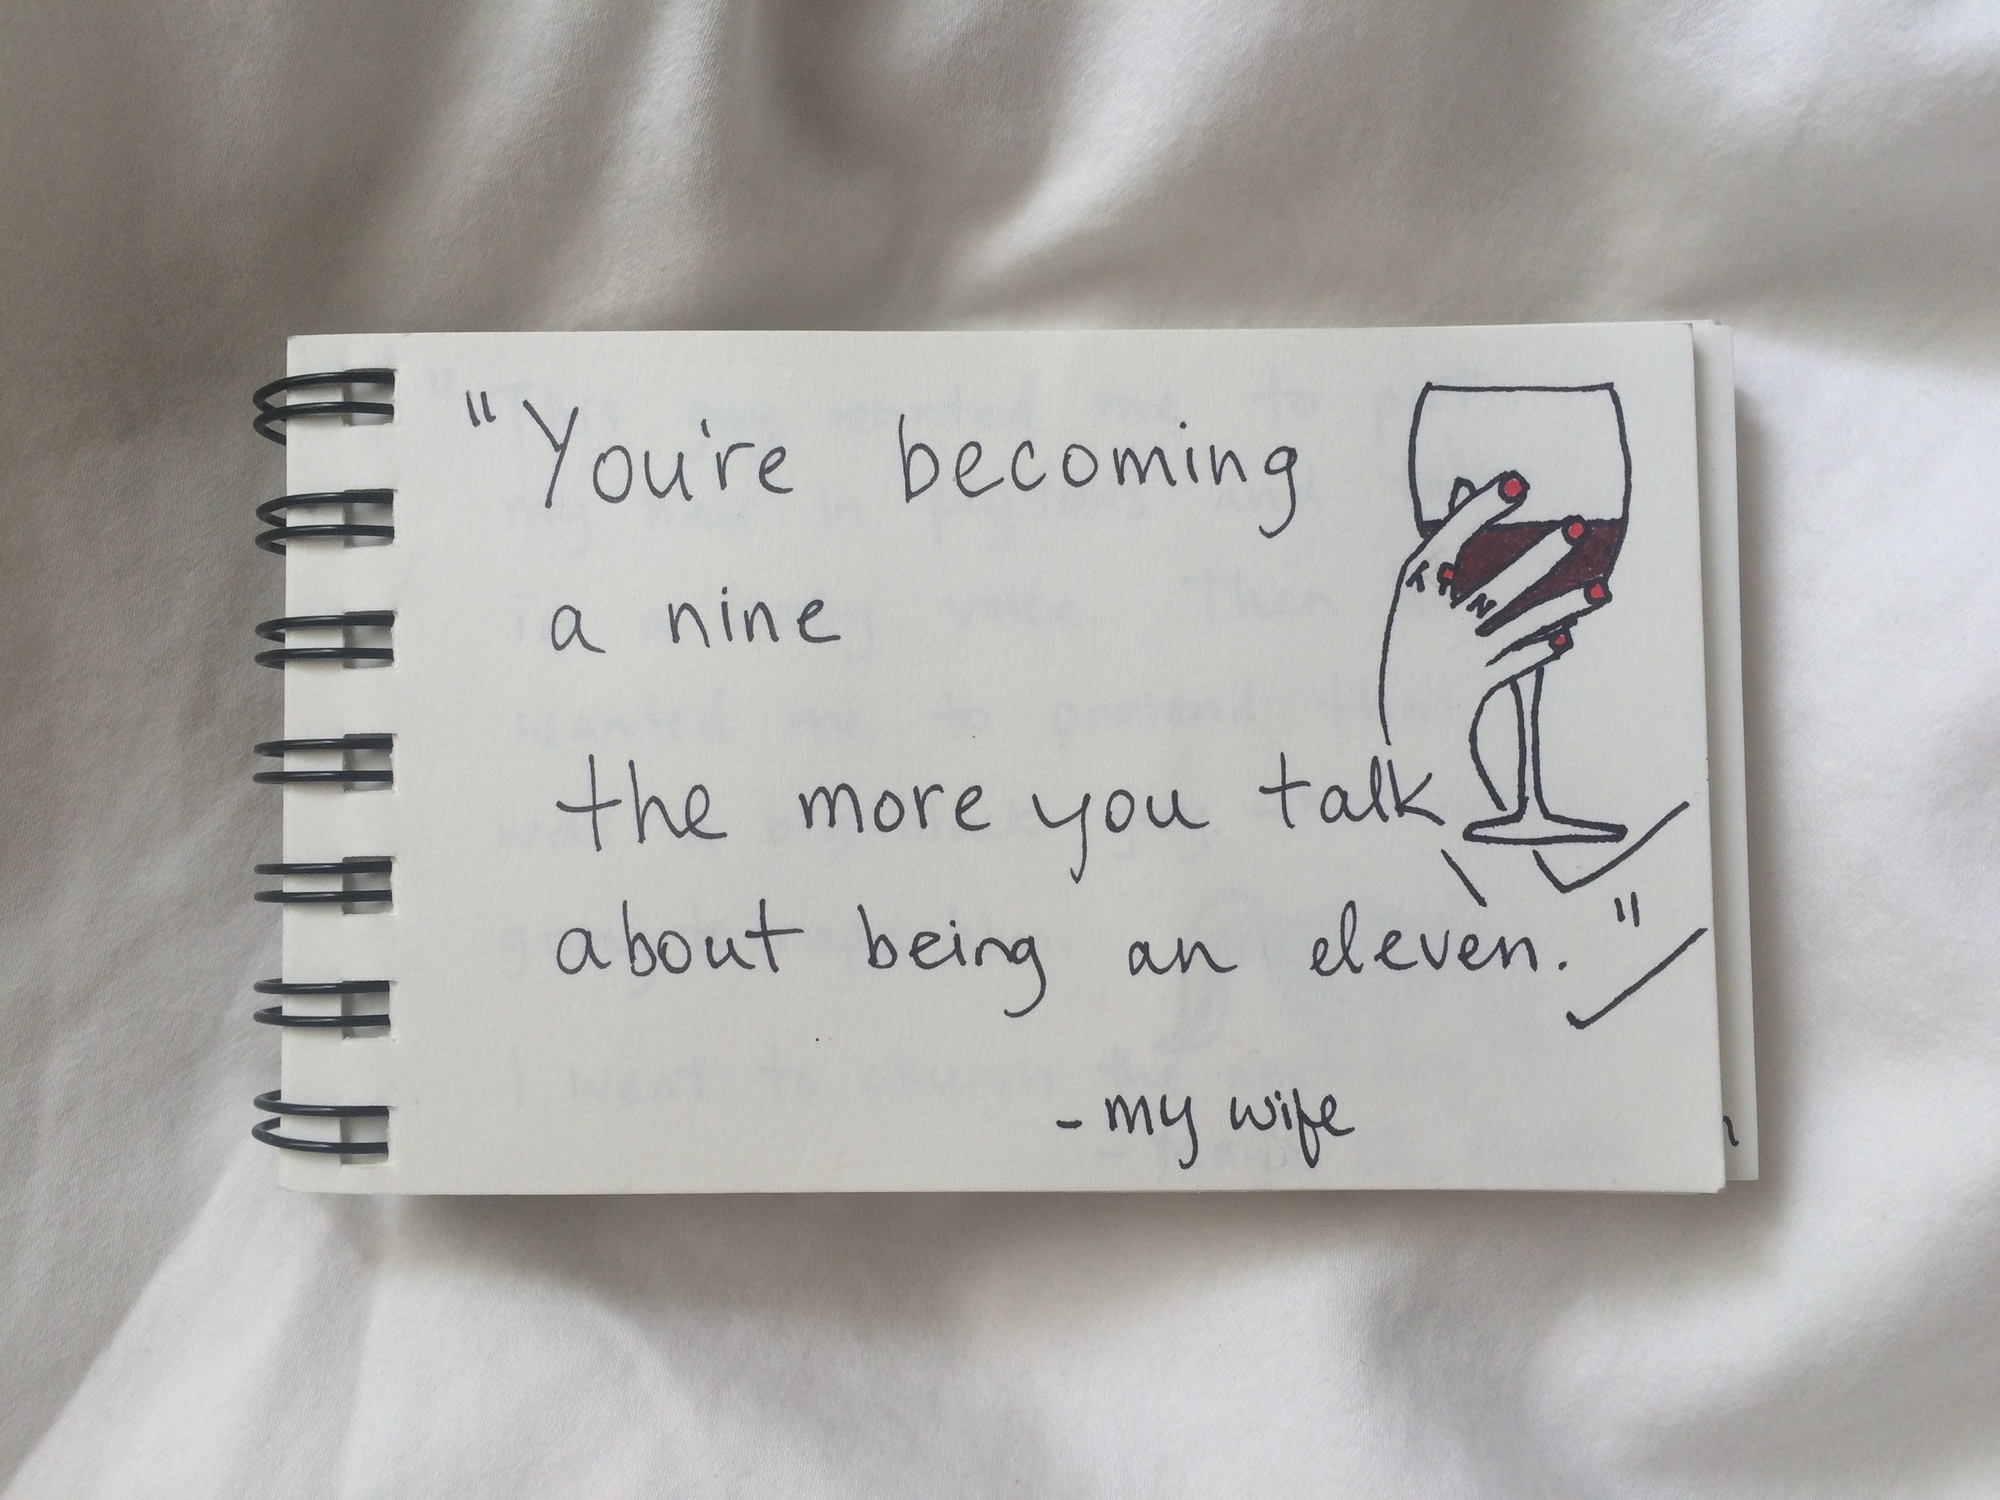 "You're becoming
a nine
the more you talk
about being an eleven."
- my wife